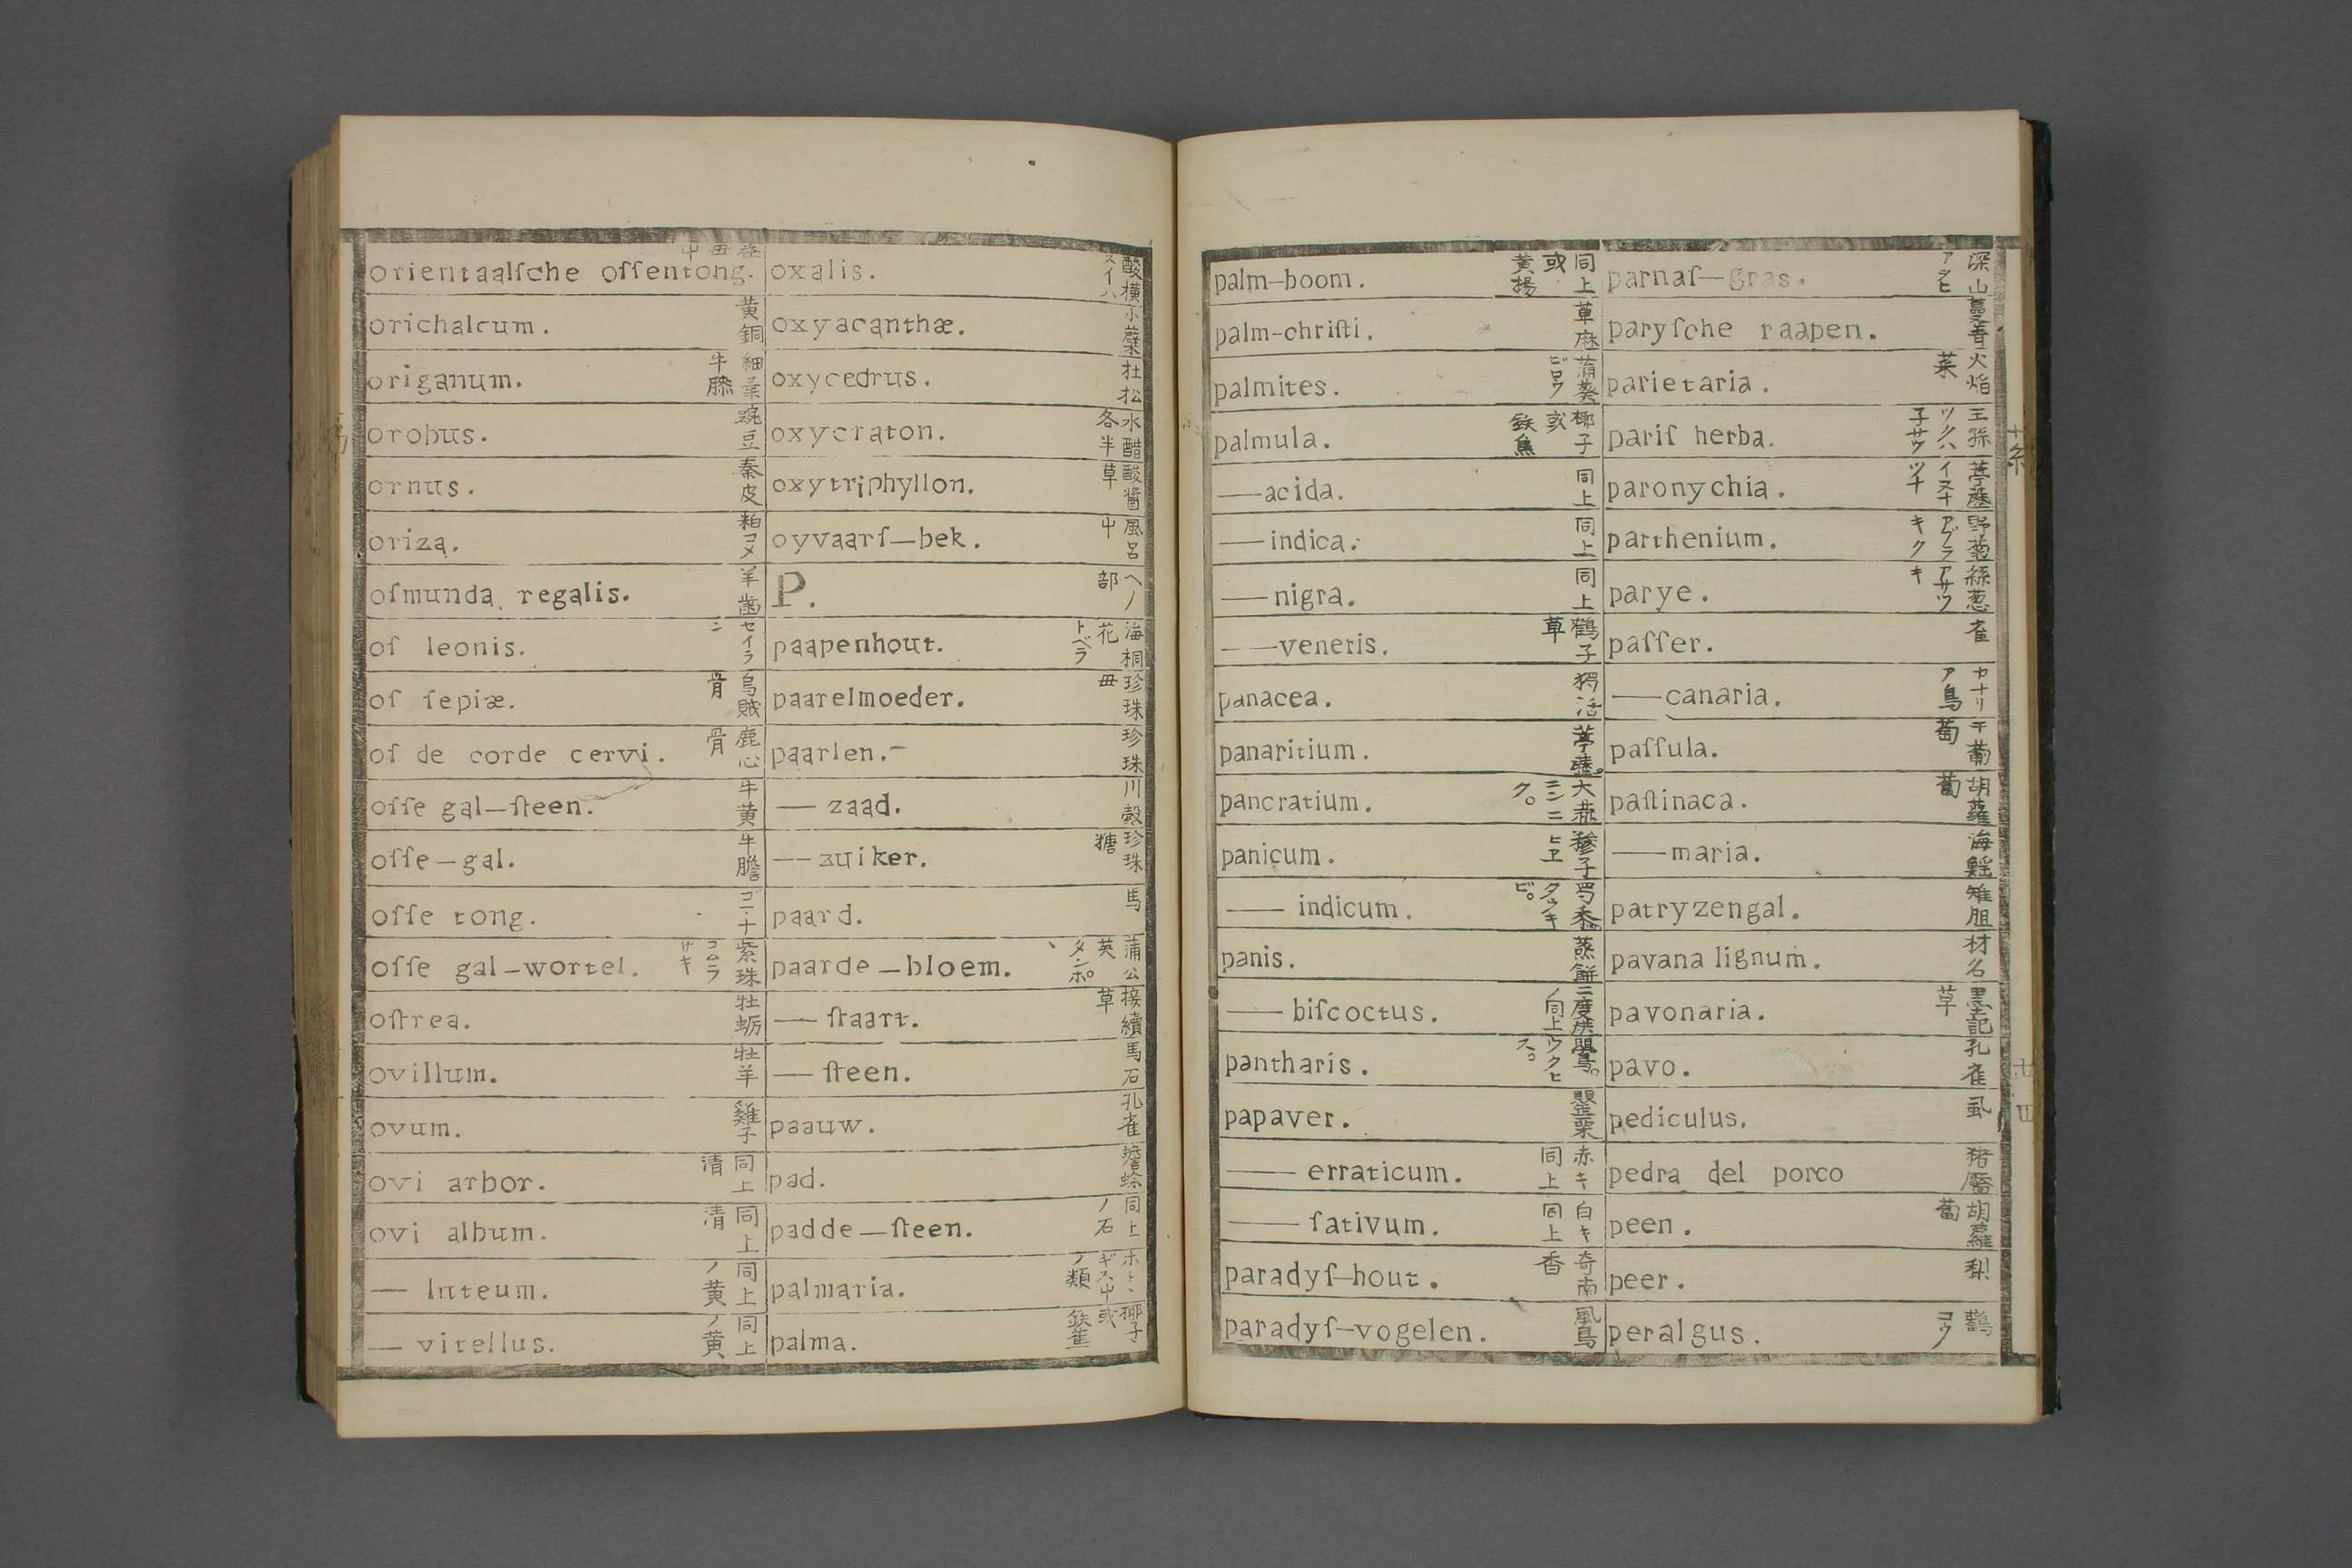 orientaalſche oſſentong. 益母中
orichalcum. 黄銅
origanum. 細葉牛膝
orobus. 豌豆
ornus. 秦皮
oriza. 粕コメ
oſmunda regalis. 羊歯
oſ leonis. セイラン
oſ ſepiæ. 烏賊骨
oſ de corde cervi. 鹿心骨
oſſe gal—ſteen. 牛黄
oſſe—gal. 牛膽
oſſe tong.
oſſe gal-wortel. 紫珠 コムラサキ
oſtrea. 牡蛎
ovillum. 牡羊
ovum. 雞子
ovi arbor. 同上清
ovi album. 同上清
— luteum. 同上ノ黄
— vitellus. 同上ノ黄
oxalis. 酸横 スイハ
oxyacanthæ. 小蘗
oxycedrus. 杜松
oxycraton. 水醋各半
oxytriphyllon. 酸醬草
oyvaarſ—bek. 風呂中
P. ヘノ部
paapenhout. 海桐花 トベラ
paarelmoeder. 珍珠母
paarlen. 珍珠
— zaad. 川穀
— zuiker. 珍珠糖
paard. 馬
paarde—bloem. 蒲公英 タンポヽ
— ſtaart. 接續草
— ſteen. 馬石
paauw. 孔雀
pad. 蟾蜍
padde—ſteen. 同上ノ石
palmaria. ホトヽギス中ノ類
palma. 椰子或鉄蕉
palm—boom. 同上或黄楊
palm-chriſti. 草麻
palmites. 蒲葵 ビロウ
palmula. 椰子或鉄蕉
—acida. 同上
—indica. 同上
—nigra. 同上
—veneris. 鶴子草
panacea. 獨活
panaritium. 葶藶。
pancratium. 大蒜 ニンニク。
panicum. 穇子 ヒヱ
— indicum. 蜀黍 タウキビ。
panis. 蒸餅
— biſcoctus. 二度焼ノ同上
pantharis. 鸎。 ウクヒス。
papaver. 罌粟
— erraticum. 赤キ同上
— ſativum. 白キ同上
paradyſ—hout. 奇南香
paradyſ—vogelen. 風鳥
parnaſ—gras. 深山 アシヒ
paryſche raapen. 蔓菁
parietaria. 火焔菜
pariſ herba. 王孫 ツクハ子サウ
paronychia. 葶藶 イヌナツナ
parthenium. 野菊 アブラキク
parye. 絲葱 アサツキ
paſſer. 雀
—canaria. カナリア鳥
paſſula. 干葡萄
paſtinaca. 胡蘿蔔
—maria. 海鷂
patryzengal. 雉胆
pavana lignum. 材名
pavonaria. 墨記草
pavo. 孔雀
pediculus. 虱
pedra del porco 猪靨
peen. 胡蘿蔔
peer. 梨
peralgus. 鸛 コウ